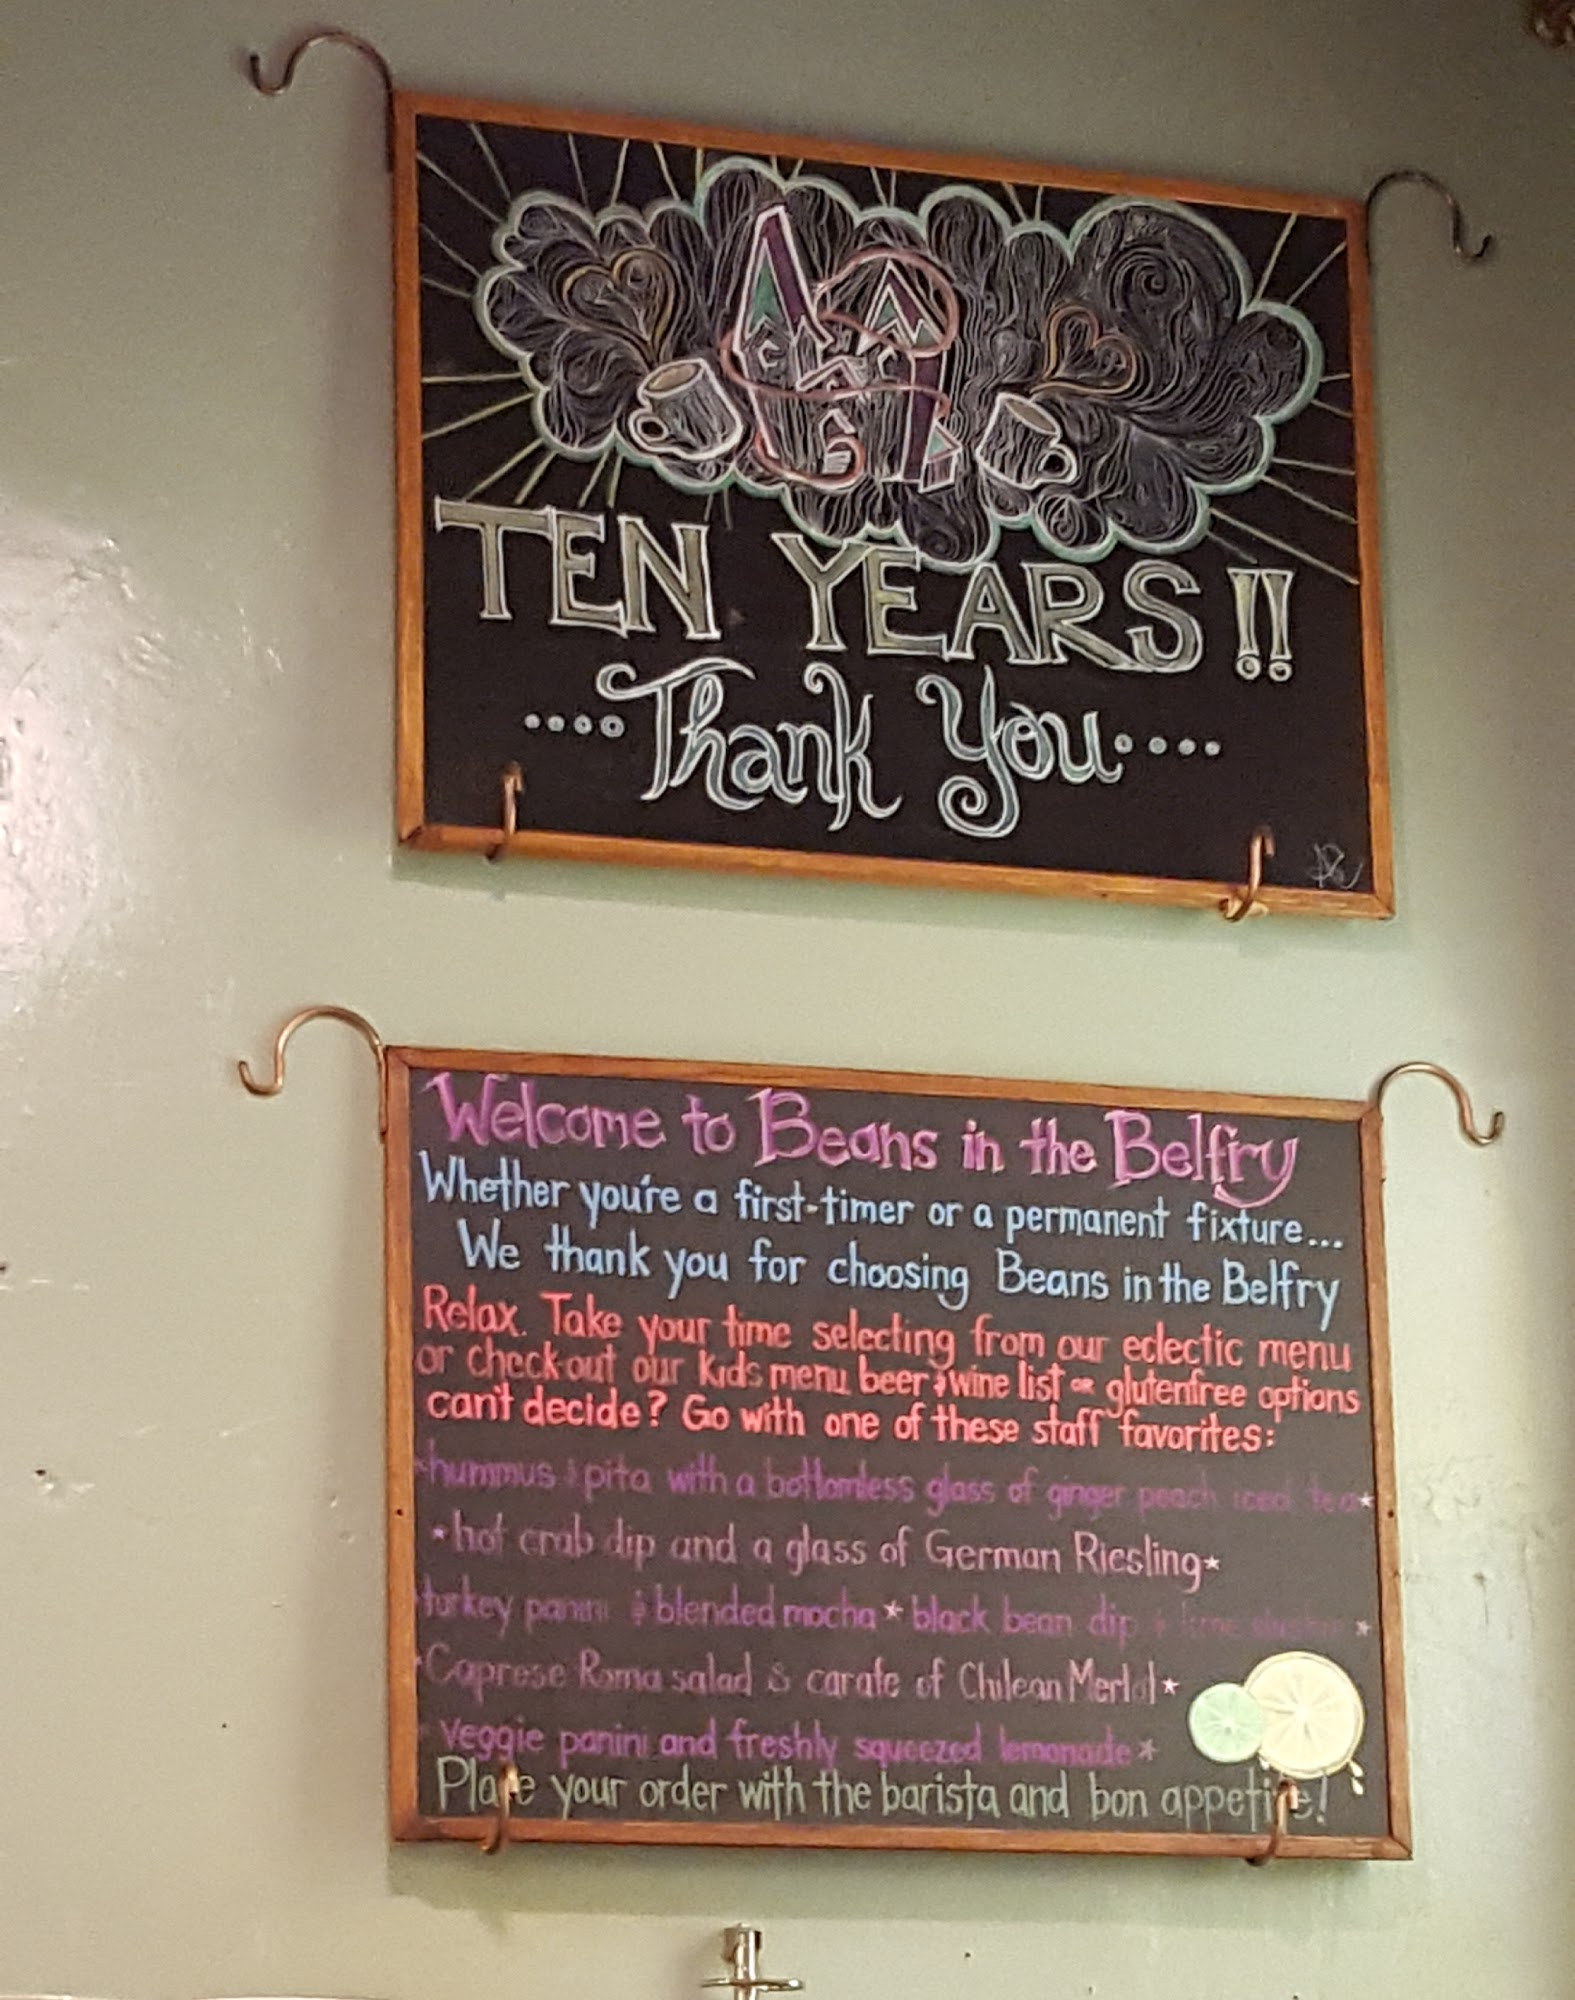 TEN YEARS!!
....Thank You....
Welcome to Beans in the Belfry
Whether you're a first-timer or a permanent fixture...
We thank you for choosing Beans in the Belfry
Relax. Take your time selecting from our eclectic menu
or check-out our kids menu beer & wine list or glutenfree options
can't decide? Go with one of these staff favorites:
hummus & pita with a bottomless glass of ginger peach iced tea*
*hot crab dip and a glass of German Riesling*
turkey panini & blended mocha * black bean dip & lime *
Caprese Roma salad & carafe of Chilean Merlot*
veggie panini and freshly squeezed lemonade*
Place your order with the barista and bon appetite!